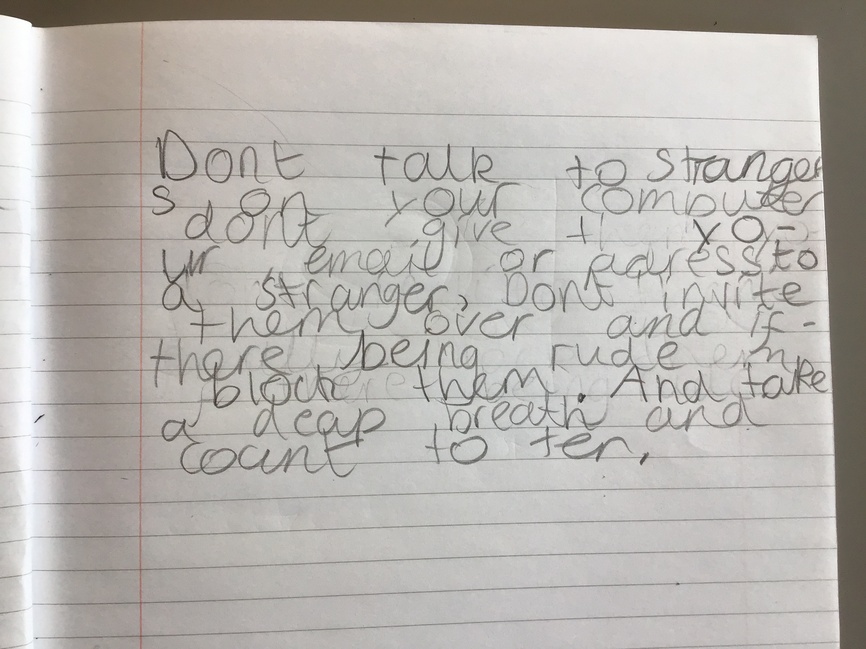 Dont talk to strange
s on your computer
dont give yo-
ur email or adress to
a stranger, Dont invite
them over and if-
there being rude
block them. And take
a deap breath and
count to ten.